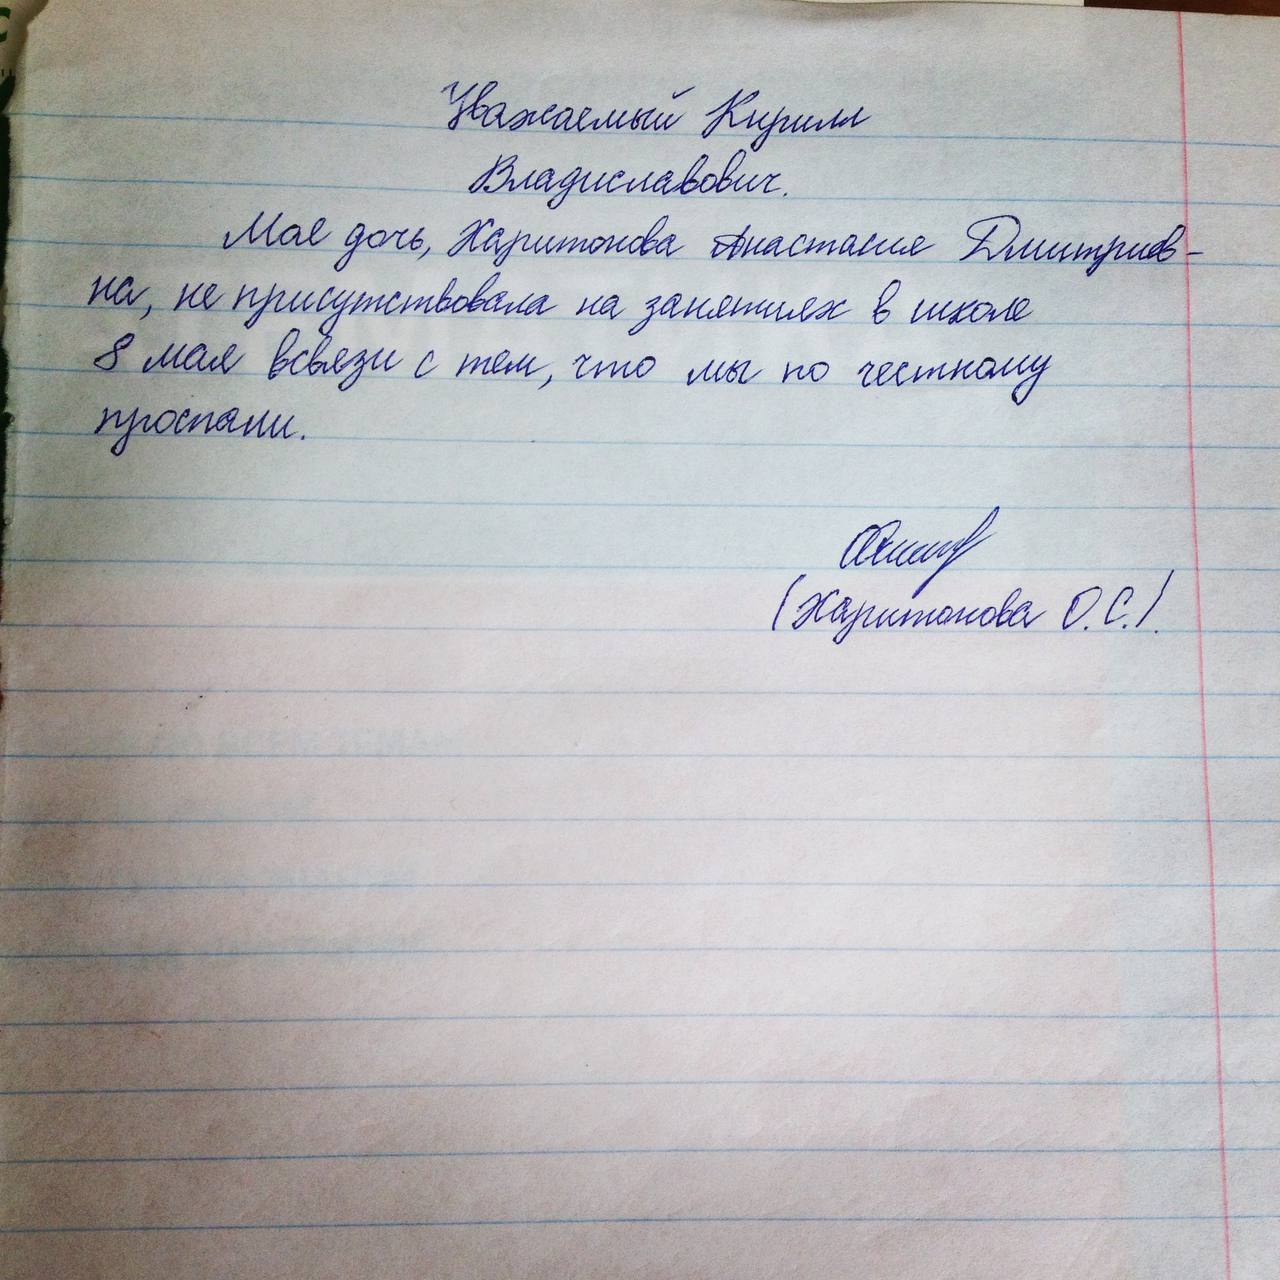 Уважаемый Кирилл
Владиславович.
Моя дочь, Харитонова Анастасия Дмитриев-
на, не присутствовала на занятиях в школе
8 мая всвязи с тем, что мы по честному
проспали.
(Харитонова О.С.).